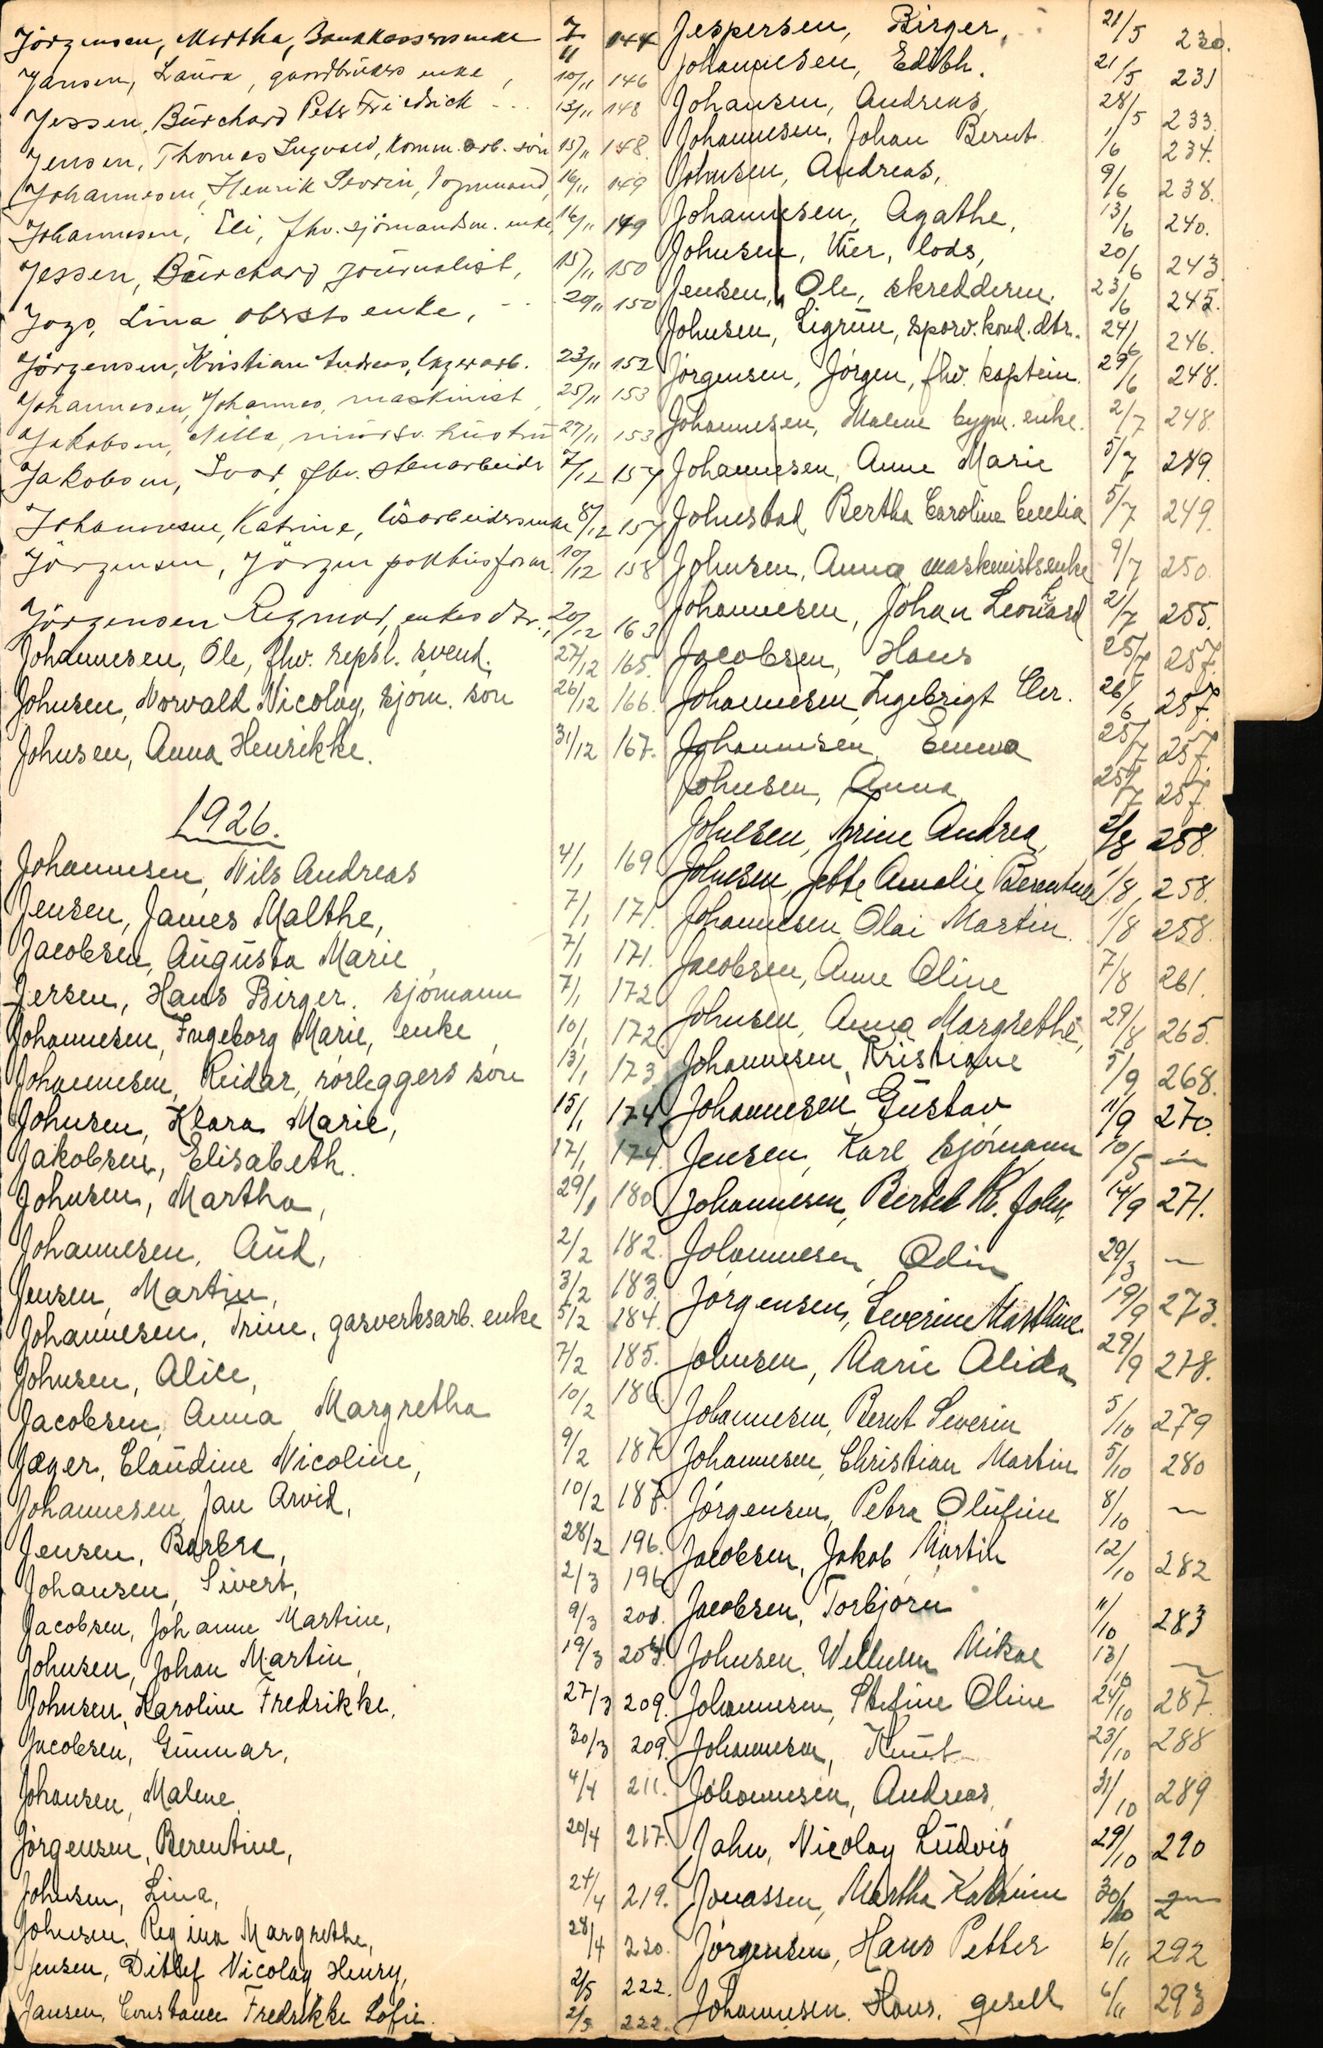 Jörgensen, Martha, Bankkasserers enke 7/11 144
Jansen, Laura, gaardbrukers enke, 10/11 146
Jessen, Bürchard Petr Friedrich 13/11 148
Jensen, Thomas Ingvald, komm. arb. sön 15/11 148.
Johannesen, Henrik Severin, 16/11 149
Johannesen, Eli, fhv. sjömandsm. enke, 16/11 149
Jessen, Bürchard journalist, 15/11 150
Lina oberst enke, 20/11 150
Jörgensen, Kristian Andreas, lagerarb. 23/11 152
Johannesen, Johannes, maskinist, 25/11 153
Jakobsen, Nilla, hustru 27/11 153
Jakobsen, Ivar, fhv. stenarbeider 7/12 157
Johannesen, Katrine, enke 8/12 157
Jörgensen, Jörgen 10/12 158
Jörgensen Ragmor, enkes dtr., 20/12 163
Johannesen, Ole, fhv. repsl. svend. 27/12 165.
Johnsen, Norvald Nicolay, sjöm. sön 26/12 166.
Johnsen, Anna Henrikke. 31/12 167.
1926.
Johannesen, Nils Andreas 4/1 169
Jensen, James Malthe, 7/1 171.
Jacobsen, Augusta Marie 7/1 171.
Jersen, Hans Birger. sjömann 7/1 172
Johannesen, Ingeborg Marie, enke, 10/1 172
Johannesen, Reidar, rörleggers sön 13/1 173
Johnsen, Klara Marie, 15/1 174
Jakobsen, Elisabeth. 17/1 174.
Johnsen, Martha, 29/1 180
Johannesen, Aud, 2/2 182.
Jensen, Martin, 3/2 183.
Johannesen, Trine, gasverksarb. enke 5/2 184.
Johnsen, Alice, 7/2 185.
Jacobsen, Anna Margretha 10/2 186
Jæger, Claudine Nicoline, 9/2 187
Johannesen, Jan Arvid, 10/2 187.
Jensen, Barbra, 28/2 196.
Johansen, Sivert, 2/3 196
Jacobsen, Johanne Martine, 9/3 200.
Johnsen, Johan Martin, 19/3 204.
Johnsen, Karoline Fredrikke, 27/3 209.
Jacobsen, Gunnar, 30/3 209.
Johansen, Malene. 4/4 211.
Jörgensen, Berentine, 20/4 217.
Johnsen, Lina, 24/4 219.
Johnsen, Regina Margrethe, 28/4 220.
Jensen, Ditlef Nicolay Henry, 2/5 222.
Jansen, Constance Fredrikke Sofie. 2/5 222.
Jespersen, Birger, 21/5 230.
Johannesen, Edith. 21/5 231
Johansen, Andreas, 28/5 233.
Johannesen, Johan Bernt. 1/6 234.
Johnsen, Andreas, 9/6 238.
Johannesen, Agathe, 13/6 240.
Johnsen, lods, 20/6 243.
Jensen, Ole, skredderm. 23/6 245.
Johnsen, Sigrun, sporv. kond. dtr. 24/6 246.
Jörgensen, Jörgen, fhv. kaptein. 29/6 248.
Johannesen, Malene bygm. enke. 2/7 248.
Johannesen, Anne Marie 5/7 249.
Johnstad Bertha Caroline Cecilia 5/7 249.
Johnsen, Anna maskinistsenke 9/7 250.
Johannesen, Johan Leonhard 21/7 255.
Jacobsen, Hans 25/7 257.
Johannesen, Ingebrigt Chr. 26/6 257.
Johannesen, Emma 25/7 257.
Johnsen, Anna 25/7 257.
Johnsen, Trine Andrea, 2/8 258.
Johnsen, Jette Amalie Berentine 1/8, 258.
Johannesen Olai Martin. 1/8 258.
Jacobsen, Anne Oline 7/8 261.
Johnsen, Anna Margrethe, 29/8 265.
Johannesen, Kristiane 5/9 268.
Johannesen Gustav 11/9 270.
Jensen, Karl sjömann 10/5 —
Johannesen, Bertel Kr. John, 14/9 271.
Johannesen, Odin 29/3 —
Jörgensen, Severine Mathline. 19/9 273.
Johnsen, Marie Alida 29/9 278.
Johannesen, Bernt Severin 5/10 279
Johannesen, Christian Martin 5/10 280
Jörgensen, Petra Olufine 8/10 —
Jacobsen, Jakob Martin 12/10 282
Jacobsen, Torbjörn 11/10 283
Johnsen, Wilhelm Mikae 13/10 —
Johannesen, Stefine Oline 24/10 287.
Johannesen, Knut 23/10 288
Johannesen, Andreas, 31/10 289
Jahn, Nicolay Ludvig 29/10 290
Jonassen, Martha Katrine 30/10 —
Jörgensen, Hans Petter 6/11 292
Johannesen. Hans. gesell 6/11 293